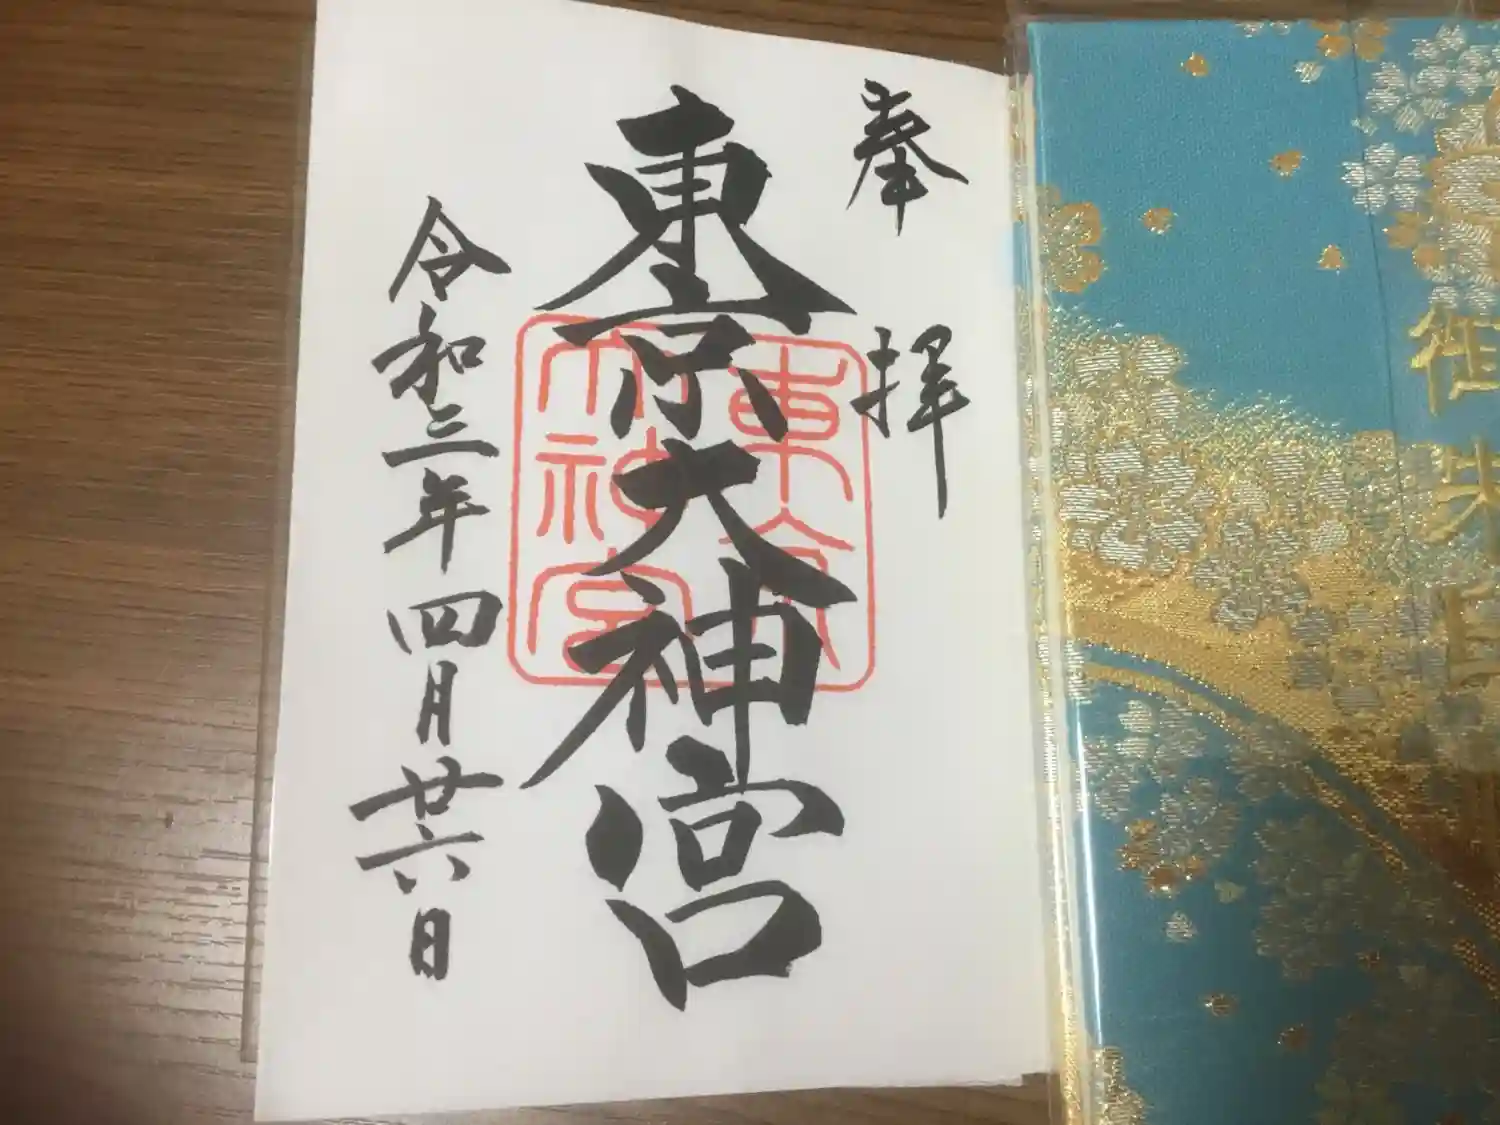 御朱印
奉拝
東京大神宮
東京大神宮
令和三年四月廿六日